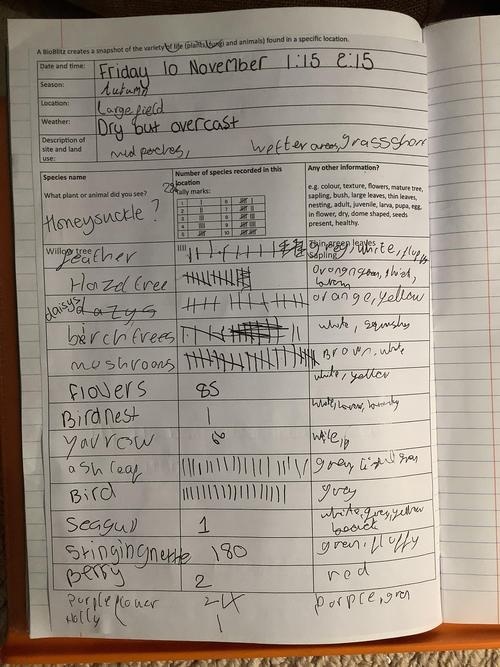 A BioBlitz creates a snapshot of the variety of life (plants, fungi and animals) found in a specific location.
Date and time: Friday 10 November 1:15 2:15
Season: Autumn
Location: Large field
Weather: Dry but overcast
Description of site and land use: mud patches, wetter areas, grass short
Species name
What plant or animal did you see?
Honeysuckle?
Number of species recorded in this location
Tally marks:
Any other information?
e.g. colour, texture, flowers, mature tree, sapling, bush, large leaves, thin leaves, nesting, adult, juvenile, larva, pupa, egg, in flower, dry, dome shaped, seeds present, healthy.
Willow tree Thin green leaves
Sapling
feather grey, white, fluffy
Hazel tree
daisys orange, yellow
birch trees white,
mushrooms Brown, white
Flowers 85 white, yellow
Birdnest 1
yarrow 8
ash leaf
Bird grey
Seagull 1 white, grey, yellow
Stingingnette 180 green, fluffy
Berry 2 red
Purple flower 24 purple, gren
Holly 1